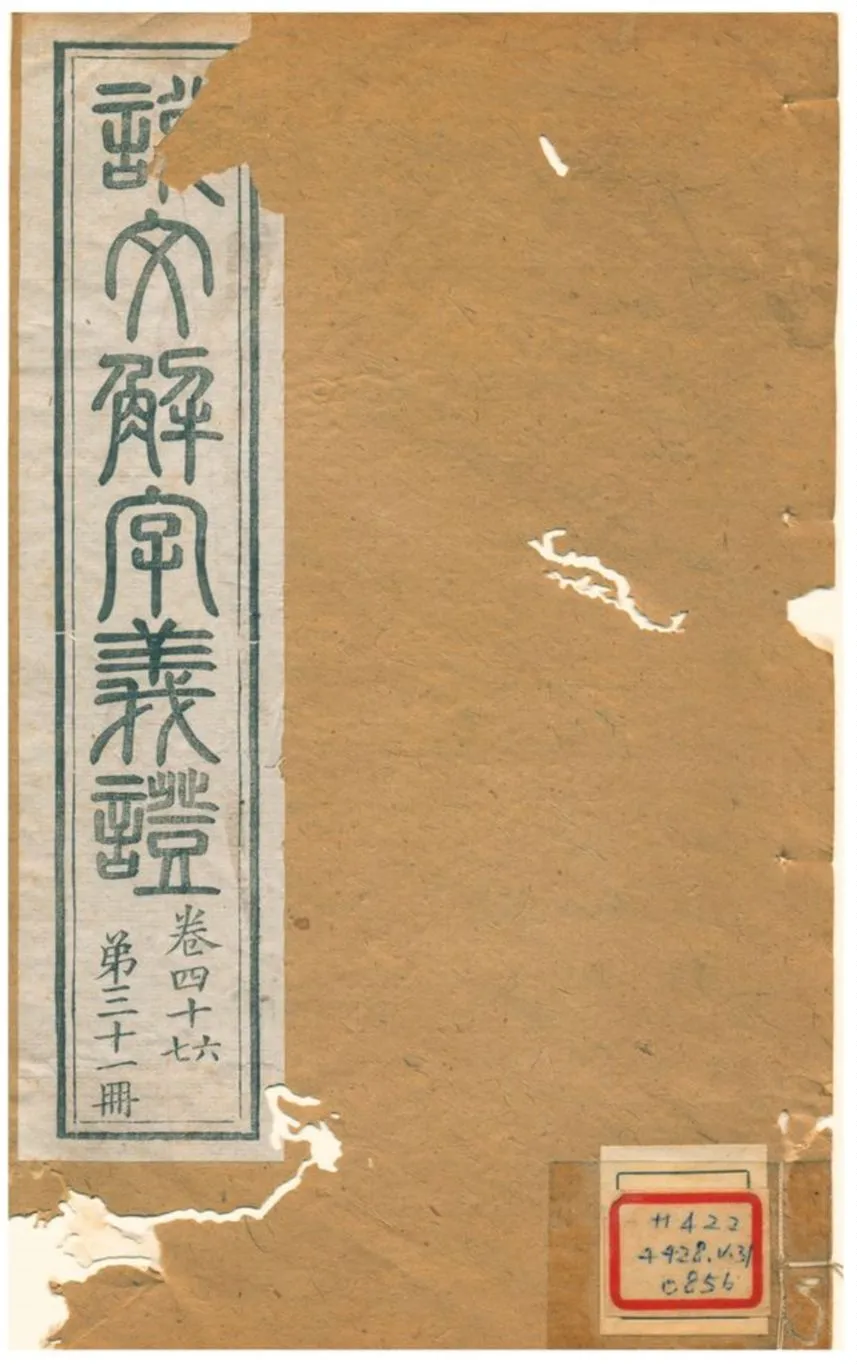 說文解字義證
卷四十六七
第三十一冊
H 422
4428.V.31
0856